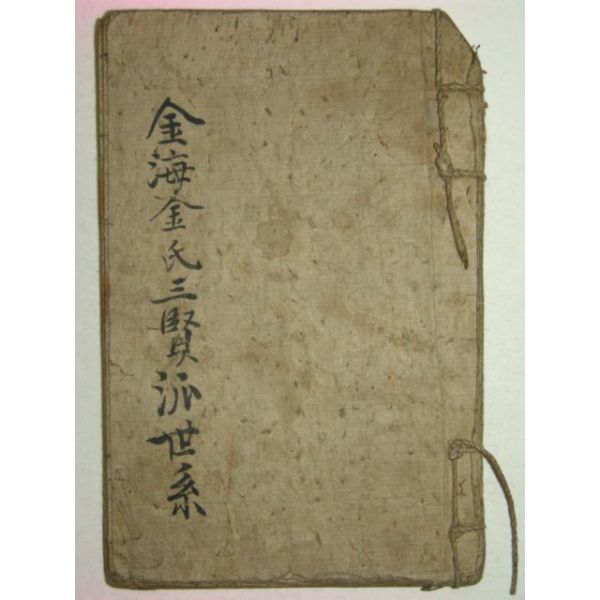 金海金氏三賢派世系